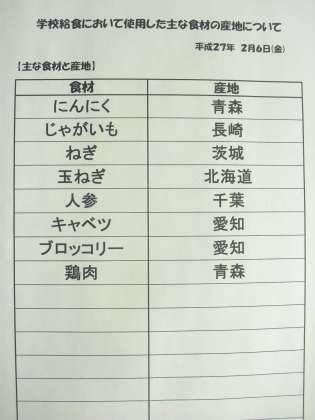 学校給食において使用した主な食材の産地について
平成27年 2月6日(金)
【主な食材と産地】
食材 産地
にんにく 青森
じゃがいも 長崎
ねぎ 茨城
玉ねぎ 北海道
人参 千葉
キャベツ 愛知
ブロッコリー 愛知
鶏肉 青森